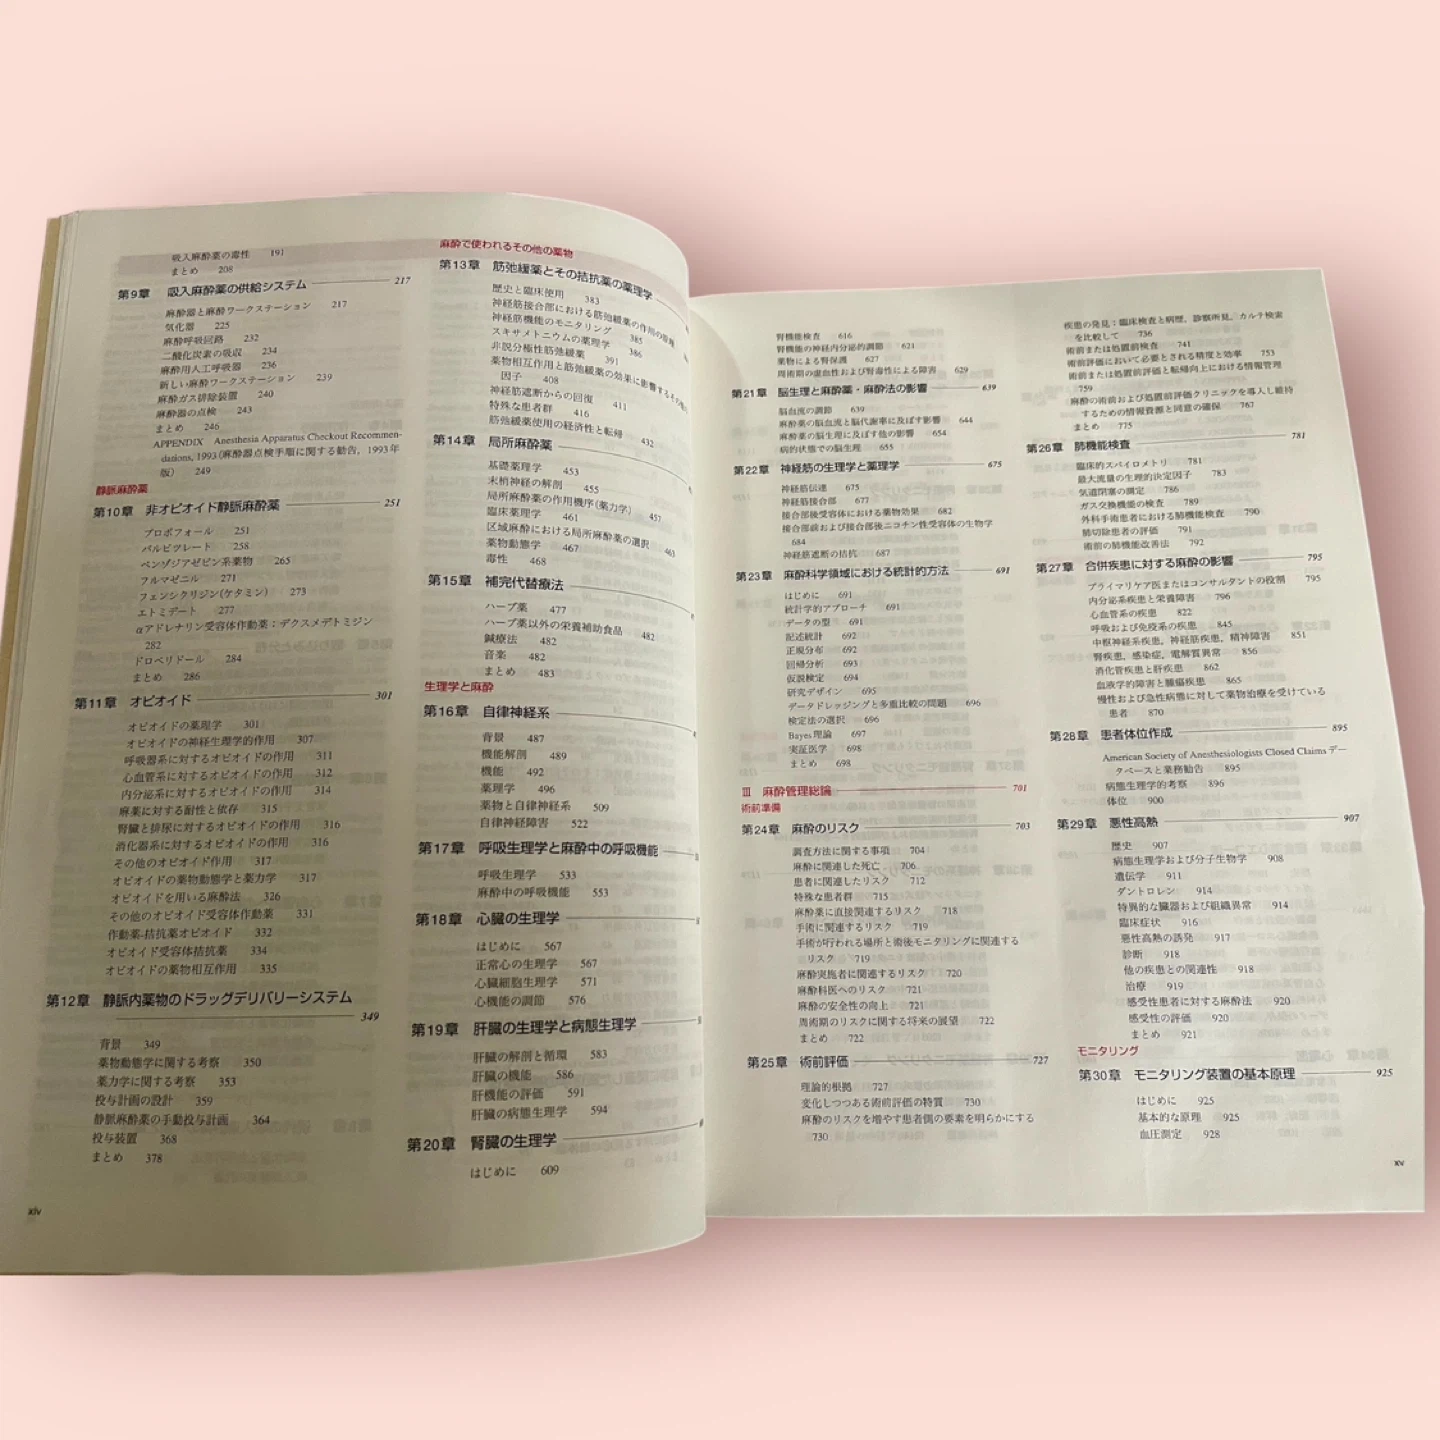 吸入麻酔薬の毒性 191
まとめ 208
第9章 吸入麻酔薬の供給システム 217
麻酔器と麻酔ワークステーション 217
気化器 225
麻酔呼吸回路 232
二酸化炭素の吸収 234
麻酔用人工呼吸器 236
新しい麻酔ワークステーション 239
麻酔ガス排除装置 240
麻酔器の点検 243
まとめ 246
APPENDIX Anesthesia Apparatus Checkout Recommen-
dations, 1993(麻酔器点検手順に関する勧告，1993年
版) 249
静脈麻酔薬
第10章 非オピオイド静脈麻酔薬 251
プロポフォール 251
バルビツレート 258
ベンゾジアゼピン系薬物 265
フルマゼニル 271
フェンシクリジン(ケタミン) 273
エトミデート 277
αアドレナリン受容体作動薬：デクスメデトミジン
282
ドロペリドール 284
まとめ 286
第11章 オピオイド 301
オピオイドの薬理学 301
オピオイドの神経生理学的作用 307
呼吸器系に対するオピオイドの作用 311
心血管系に対するオピオイドの作用 312
内分泌系に対するオピオイドの作用 314
麻薬に対する耐性と依存 315
腎臓と排尿に対するオピオイドの作用 316
消化器系に対するオピオイドの作用 316
その他のオピオイド作用 317
オピオイドの薬物動態と薬力学 317
オピオイドを用いる麻酔法 326
その他のオピオイド受容体作動薬 331
作動薬-拮抗薬オピオイド 332
オピオイド受容体拮抗薬 334
オピオイドの薬物相互作用 335
第12章 静脈内薬物のドラッグデリバリーシステム
349
背景 349
薬物動態学に関する考察 350
薬力学に関する考察 353
投与計画の設計 359
静脈麻酔薬の手動投与計画 364
投与装置 368
まとめ 378
xiv
麻酔で使われるその他の薬物
第13章 筋弛緩薬とその拮抗薬の薬理学
歴史と臨床使用 383
神経筋接合部における筋弛緩薬の作用の原理
神経筋機能のモニタリング 385
スキサメトニウムの薬理学 386
非脱分極性筋弛緩薬 391
薬物相互作用と筋弛緩薬の効果に影響するその他の
因子 408
神経筋遮断からの回復 411
特殊な患者群 416
筋弛緩薬使用の経済性と転帰 432
第14章 局所麻酔薬
基礎薬理学 453
末梢神経の解剖 455
局所麻酔薬の作用機序(薬力学) 457
臨床薬理学 461
区域麻酔における局所麻酔薬の選択 463
薬物動態学 467
毒性 468
第15章 補完代替療法
ハーブ薬 477
ハーブ薬以外の栄養補助食品 482
鍼療法 482
音楽 482
まとめ 483
生理学と麻酔
第16章 自律神経系
背景 487
機能解剖 489
機能 492
薬理学 496
薬物と自律神経系 509
自律神経障害 522
第17章 呼吸生理学と麻酔中の呼吸機能
呼吸生理学 533
麻酔中の呼吸機能 553
第18章 心臓の生理学
はじめに 567
正常心の生理学 567
心臓細胞生理学 571
心機能の調節 576
第19章 肝臓の生理学と病態生理学
肝臓の解剖と循環 583
肝臓の機能 586
肝機能の評価 591
肝臓の病態生理学 594
第20章 腎臓の生理学
はじめに 609
腎機能検査 616
腎機能の神経内分泌的調節 621
薬物による腎保護 627
周術期の虚血性および腎毒性による障害 629
第21章 脳生理と麻酔薬・麻酔法の影響 639
脳血流の調節 639
麻酔薬の脳血流と脳代謝率に及ぼす影響 644
麻酔薬の脳生理に及ぼす他の影響 654
病的状態での脳生理 655
第22章 神経筋の生理学と薬理学 675
神経筋伝達 675
神経筋接合部 677
接合部後受容体における薬物効果 682
接合部前および接合部後ニコチン性受容体の生物学
684
神経筋遮断の拮抗 687
第23章 麻酔科学領域における統計的方法 691
はじめに 691
統計学的アプローチ 691
データの型 691
記述統計 692
正規分布 692
回帰分析 693
仮説検定 694
研究デザイン 695
データドレッジングと多重比較の問題 696
検定法の選択 696
Bayes理論 697
実証医学 698
まとめ 698
III 麻酔管理総論 701
術前準備
第24章 麻酔のリスク 703
調査方法に関する事項 704
麻酔に関連した死亡 706
患者に関連したリスク 712
特殊な患者群 715
麻酔薬に直接関連するリスク 718
手術に関連するリスク 719
手術が行われる場所と術後モニタリングに関連する
リスク 719
麻酔実施者に関連するリスク 720
麻酔科医へのリスク 721
麻酔の安全性の向上 721
周術期のリスクに関する将来の展望 722
まとめ 722
第25章 術前評価 727
理論的根拠 727
変化しつつある術前評価の特質 730
麻酔のリスクを増やす患者側の要素を明らかにする
730
疾患の発見：臨床検査と病歴，診察所見，カルテ検索
を比較して 736
術前または処置前検査 741
術前評価において必要とされる精度と効率 753
術前または処置前評価と転帰向上における情報管理
759
麻酔の術前および処置前評価クリニックを導入し維持
するための情報資源と同意の確保 767
まとめ 775
第26章 肺機能検査 781
臨床的スパイロメトリ 781
最大流量の生理的決定因子 783
気道閉塞の測定 786
ガス交換機能の検査 789
外科手術患者における肺機能検査 790
肺切除患者の評価 791
術前の肺機能改善法 792
第27章 合併疾患に対する麻酔の影響 795
プライマリケア医またはコンサルタントの役割 795
内分泌系疾患と栄養障害 796
心血管系の疾患 822
呼吸および免疫系の疾患 845
中枢神経系疾患，神経筋疾患，精神障害 851
腎疾患，感染症，電解質異常 856
消化管疾患と肝疾患 862
血液学的障害と腫瘍疾患 865
慢性および急性病態に対して薬物治療を受けている
患者 870
第28章 患者体位作成 895
American Society of Anesthesiologists Closed Claims デー
タベースと業務勧告 895
病態生理学的考察 896
体位 900
第29章 悪性高熱 907
歴史 907
病態生理学および分子生物学 908
遺伝学 911
ダントロレン 914
特異的な臓器および組織異常 914
臨床症状 916
悪性高熱の誘発 917
診断 918
他の疾患との関連性 918
治療 919
感受性患者に対する麻酔法 920
感受性の評価 920
まとめ 921
モニタリング
第30章 モニタリング装置の基本原理 925
はじめに 925
基本的な原理 925
血圧測定 928
xv